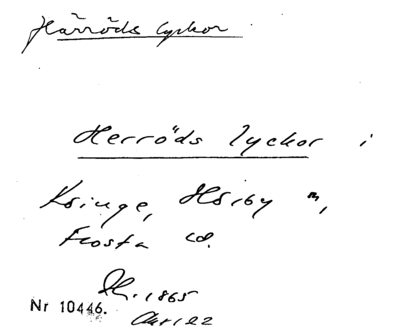 Härröds lyckor
Herröds lyckor i
Kringe, Hörby sn,
Frosta hd.
1865
Nr 10446.